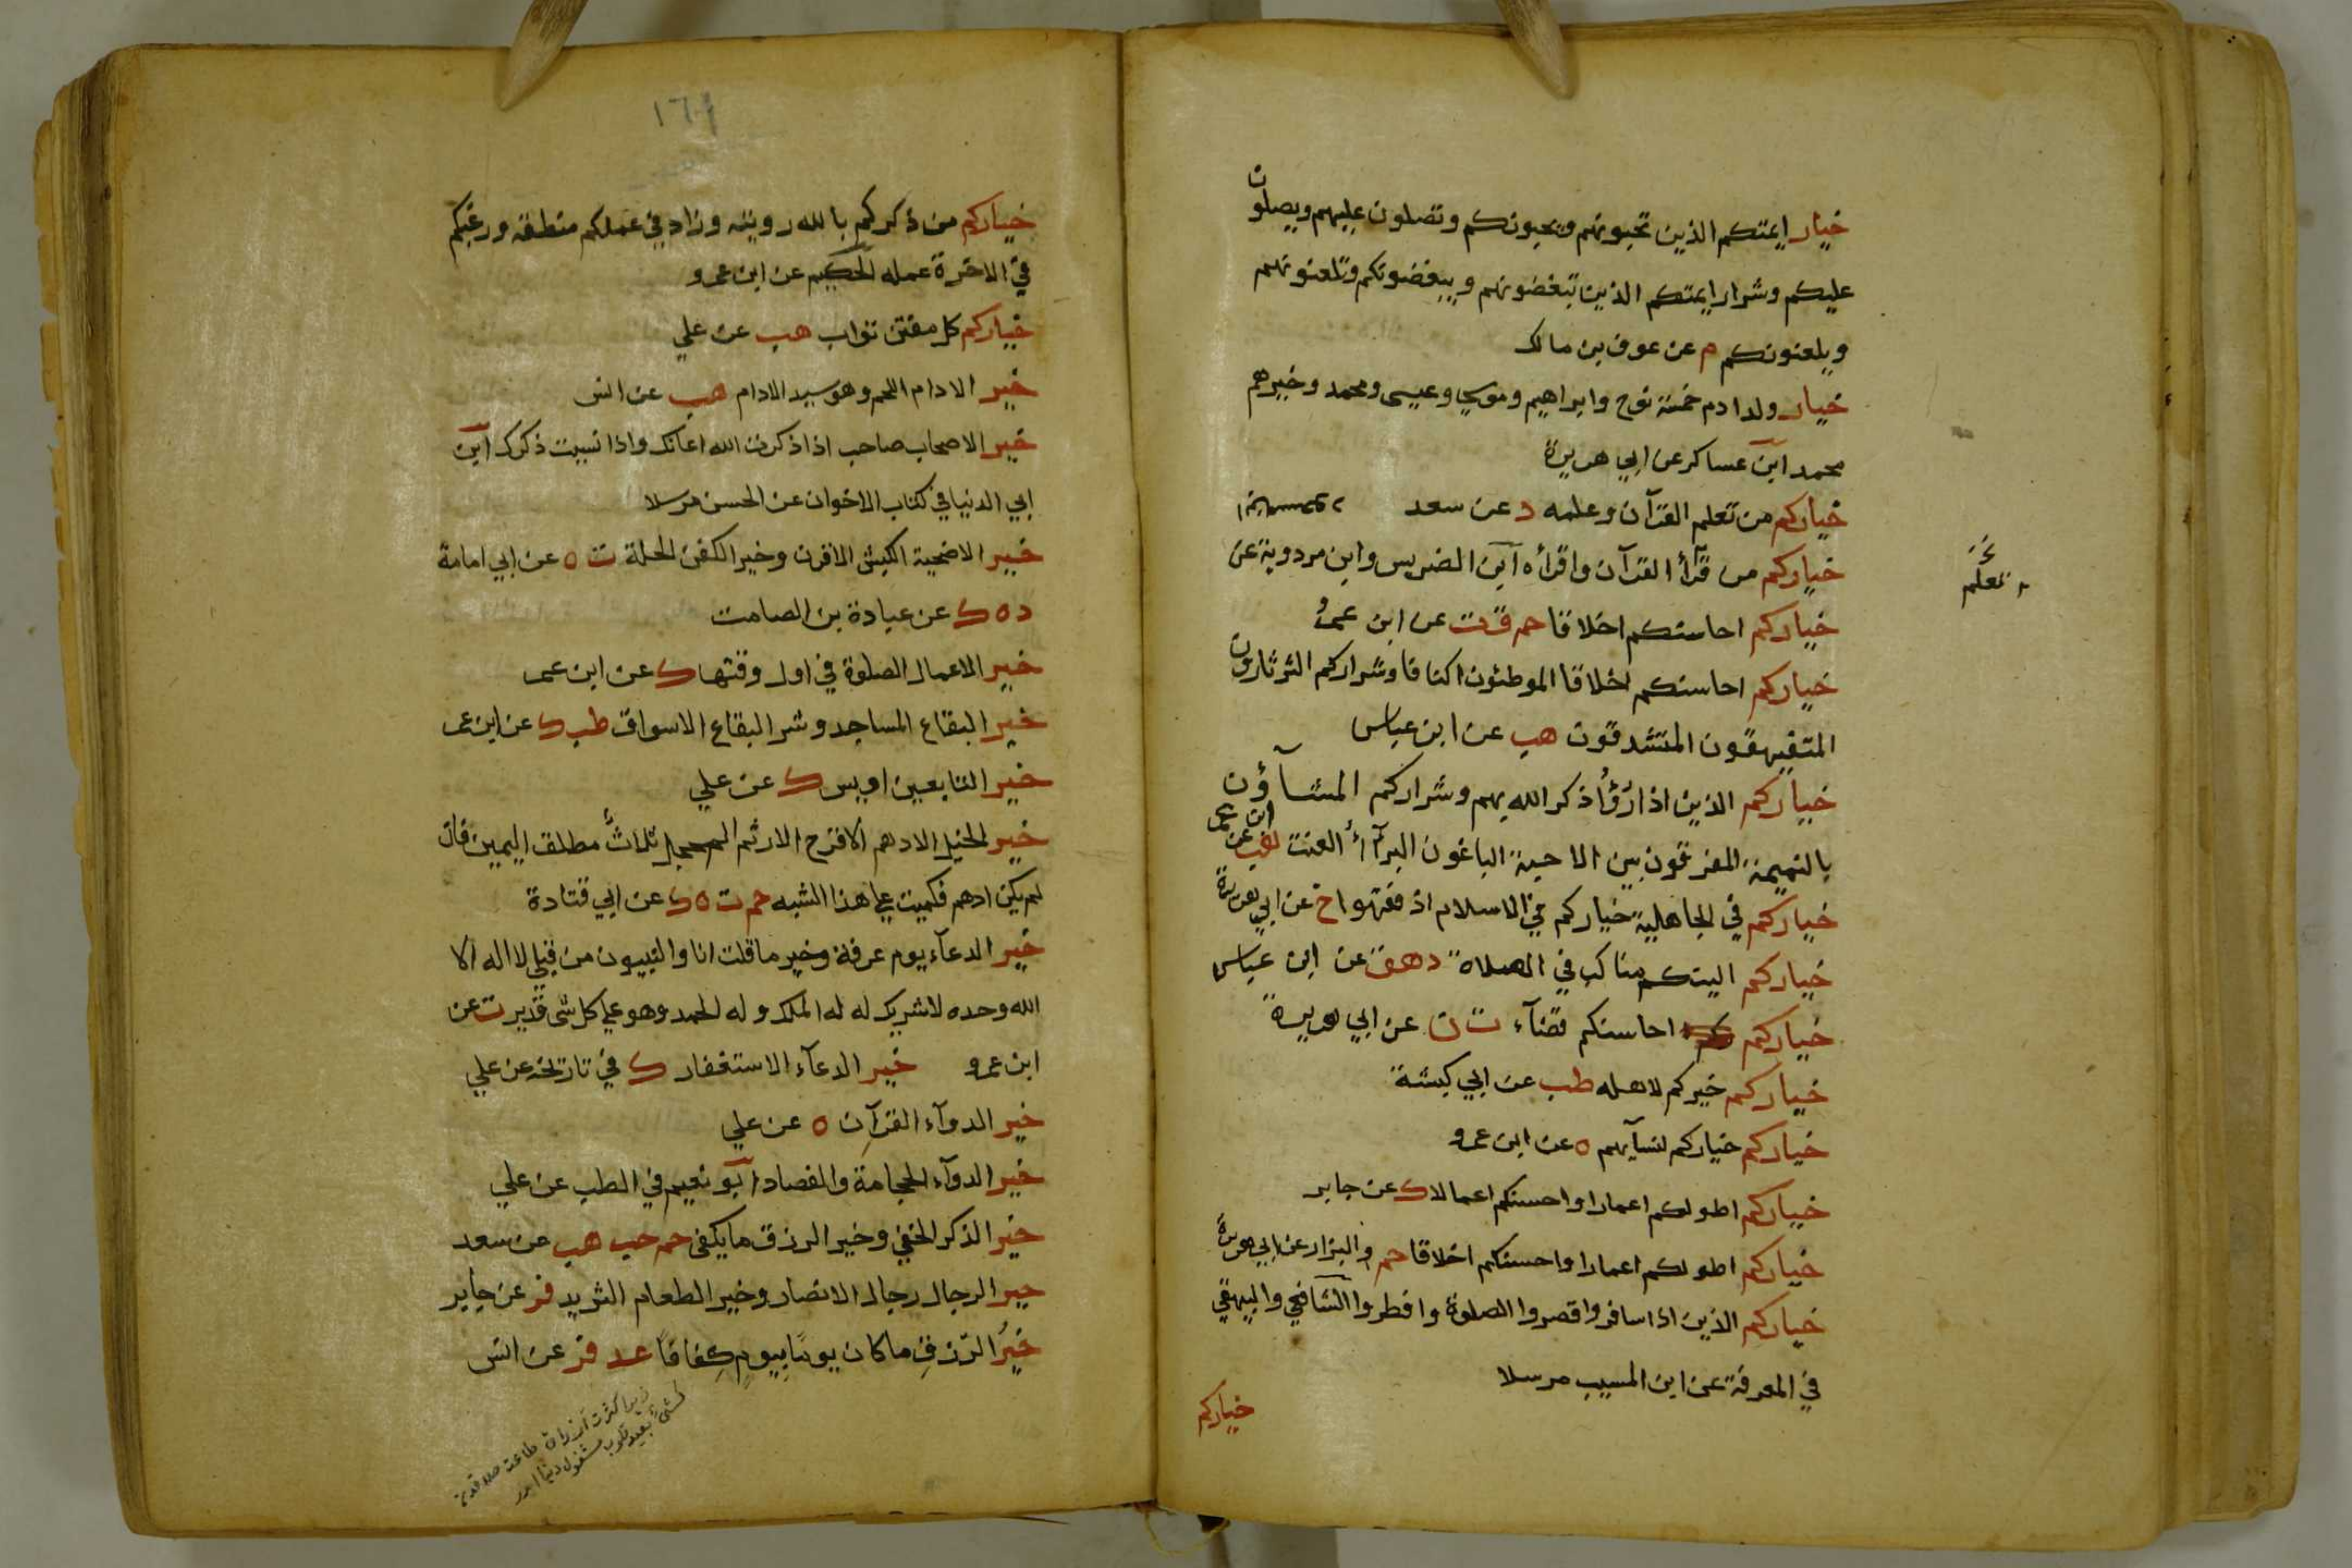 خيار ايمتكم الذين تحبونهم ويحبونكم وتصلون عليهم ويصلون
عليكم وشرار ايمتكم الذين تبغضونهم ويبغضونكم وتلعنونهم
ويلعنونكم م عن عوف بن مالك
خيار ولد ادم خمسة نوح وابراهيم وموسي وعيسى ومحمد وخيرهم
محمد ابن عساكر عن ابي هريرة
خياركم من تعلم القرآن وعلمه د عن سعد
خياركم من قرأ القرآن واقرأه ابن الضريس وابن مردوية عن
تعلم
خياركم احاسنكم اخلاقا حم ق ت عن ابن عمرو
خياركم احاسنكم اخلاقا الموطئون اكنافا وشراركم الثرثارون
المتفيهقون المتشدقون هب عن ابن عباس
خياركم الذين اذا رؤا ذكر الله بهم وشراركم المشاؤن
بالنميمة المفرقون بين الاحبة الباغون البرآء العنت هب عن ابن عمر
خياركم في الجاهلية خياركم في الاسلام اذ فقهوا خ عن ابي هريرة
خياركم الينكم مناكب في الصلاة د هق عن ابن عباس
خياركم احاسنكم قضآء ت ن عن ابي هريرة
خياركم خيركم لاهله طب عن ابي كبشة
خياركم خياركم لنسآيهم ه عن ابن عمرو
خياركم اطولكم اعمارا واحسنكم اعمالا ك عن جابر
خياركم اطولكم اعمارا واحسنكم اخلاقا حم والبزار عن ابي هريرة
خياركم الذين اذا سافروا قصروا الصلوة وافطروا الشافعي والبيهقي
في المعرفة عن ابن المسيب مرسلا
خياركم
١٦١
خياركم من ذكركم بالله رويته وزاد في عملكم منطقه ورغبكم
في الاخرة عمله الحكيم عن ابن عمرو
خياركم كل مفتن تواب هب عن علي
خير الادام اللحم وهو سيد الادام هب عن انس
خير الاصحاب صاحب اذا ذكرت الله اعانك واذا نسيت ذكرك ابن
ابي الدنيا في كتاب الاخوان عن الحسن مرسلا
خير الاضحية الكبش الاقرن وخير الكفن الحلة ت ه عن ابي امامة
د ه ك عن عبادة بن الصامت
خير الاعمال الصلوة في اول وقتها ك عن ابن عمر
خير البقاع المساجد وشر البقاع الاسواق طب ك عن ابن عمر
خير التابعين اويس ك عن علي
خير الخيل الادهم الاقرح الارثم المحجل ثلاث مطلق اليمين فان
لم يكن ادهم فكميت علي هذا الشبه حم ت ه ك عن ابي قتادة
خير الدعآء يوم عرفة وخير ما قلت انا والنبيون من قبلي لا اله الا
الله وحده لا شريك له له الملك وله الحمد وهو علي كل شى قدير ت عن
ابن عمرو خير الدعآء الاستغفار ك في تاريخه عن علي
خير الدوآء القرآن ه عن علي
خير الدوآء الحجامة والفصاد ابو نعيم في الطب عن علي
خير الذكر الخفي وخير الرزق ما يكفى حم حب هب عن سعد
خير الرجال رجال الانصار وخير الطعام الثريد فر عن جابر
خير الرزق ما كان يوما بيوم كفافا عد فر عن انس